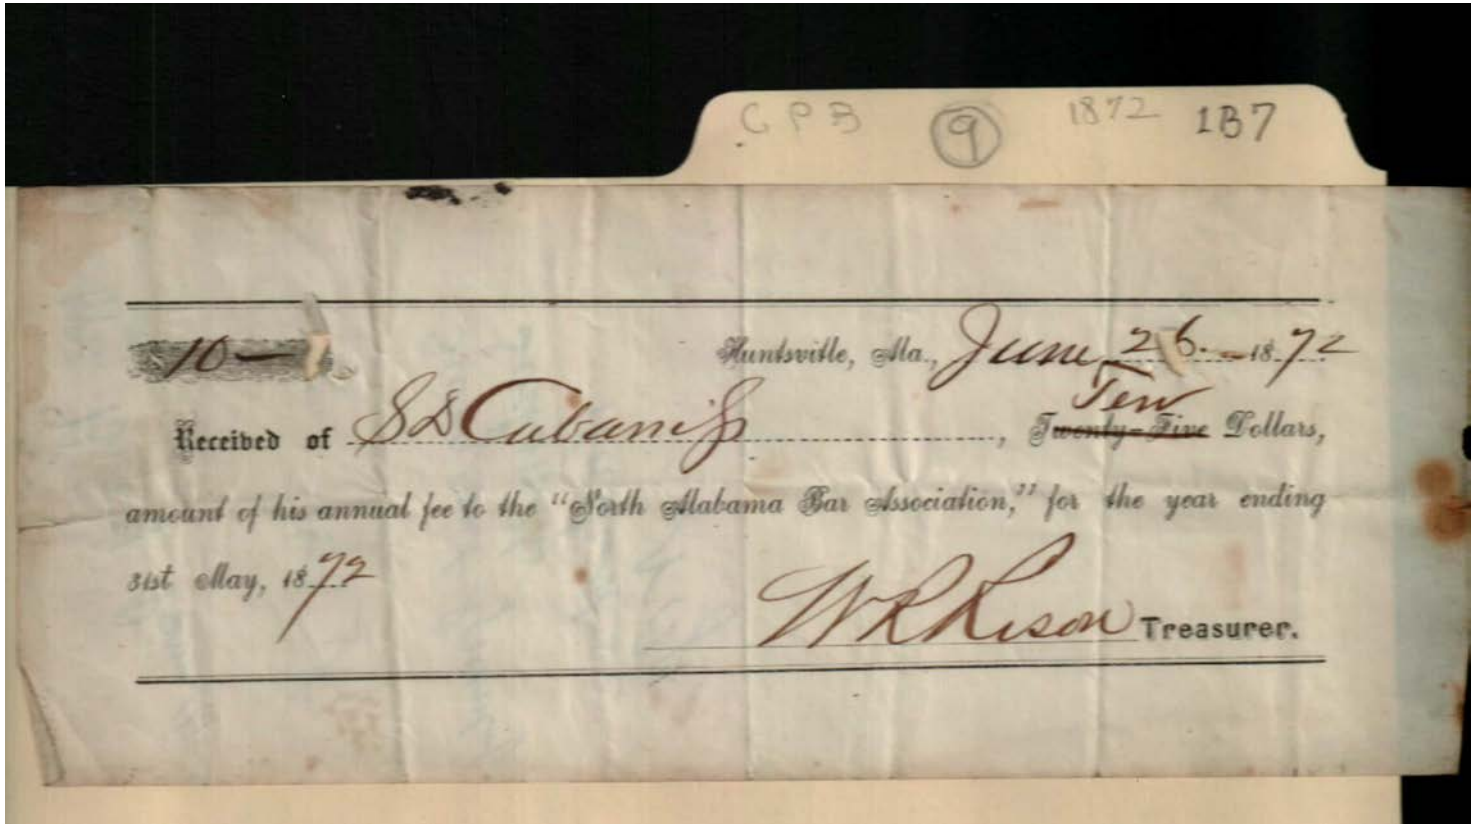 C P B 9 1872 1B7
10 — Huntsville, Ala., June 26. 1872
Ten
Received of S D Cabaniss, Twenty-Five Dollars,
amount of his annual fee to the "North Alabama Bar Association," for the year ending
31st May, 1872
W R Rison Treasurer.